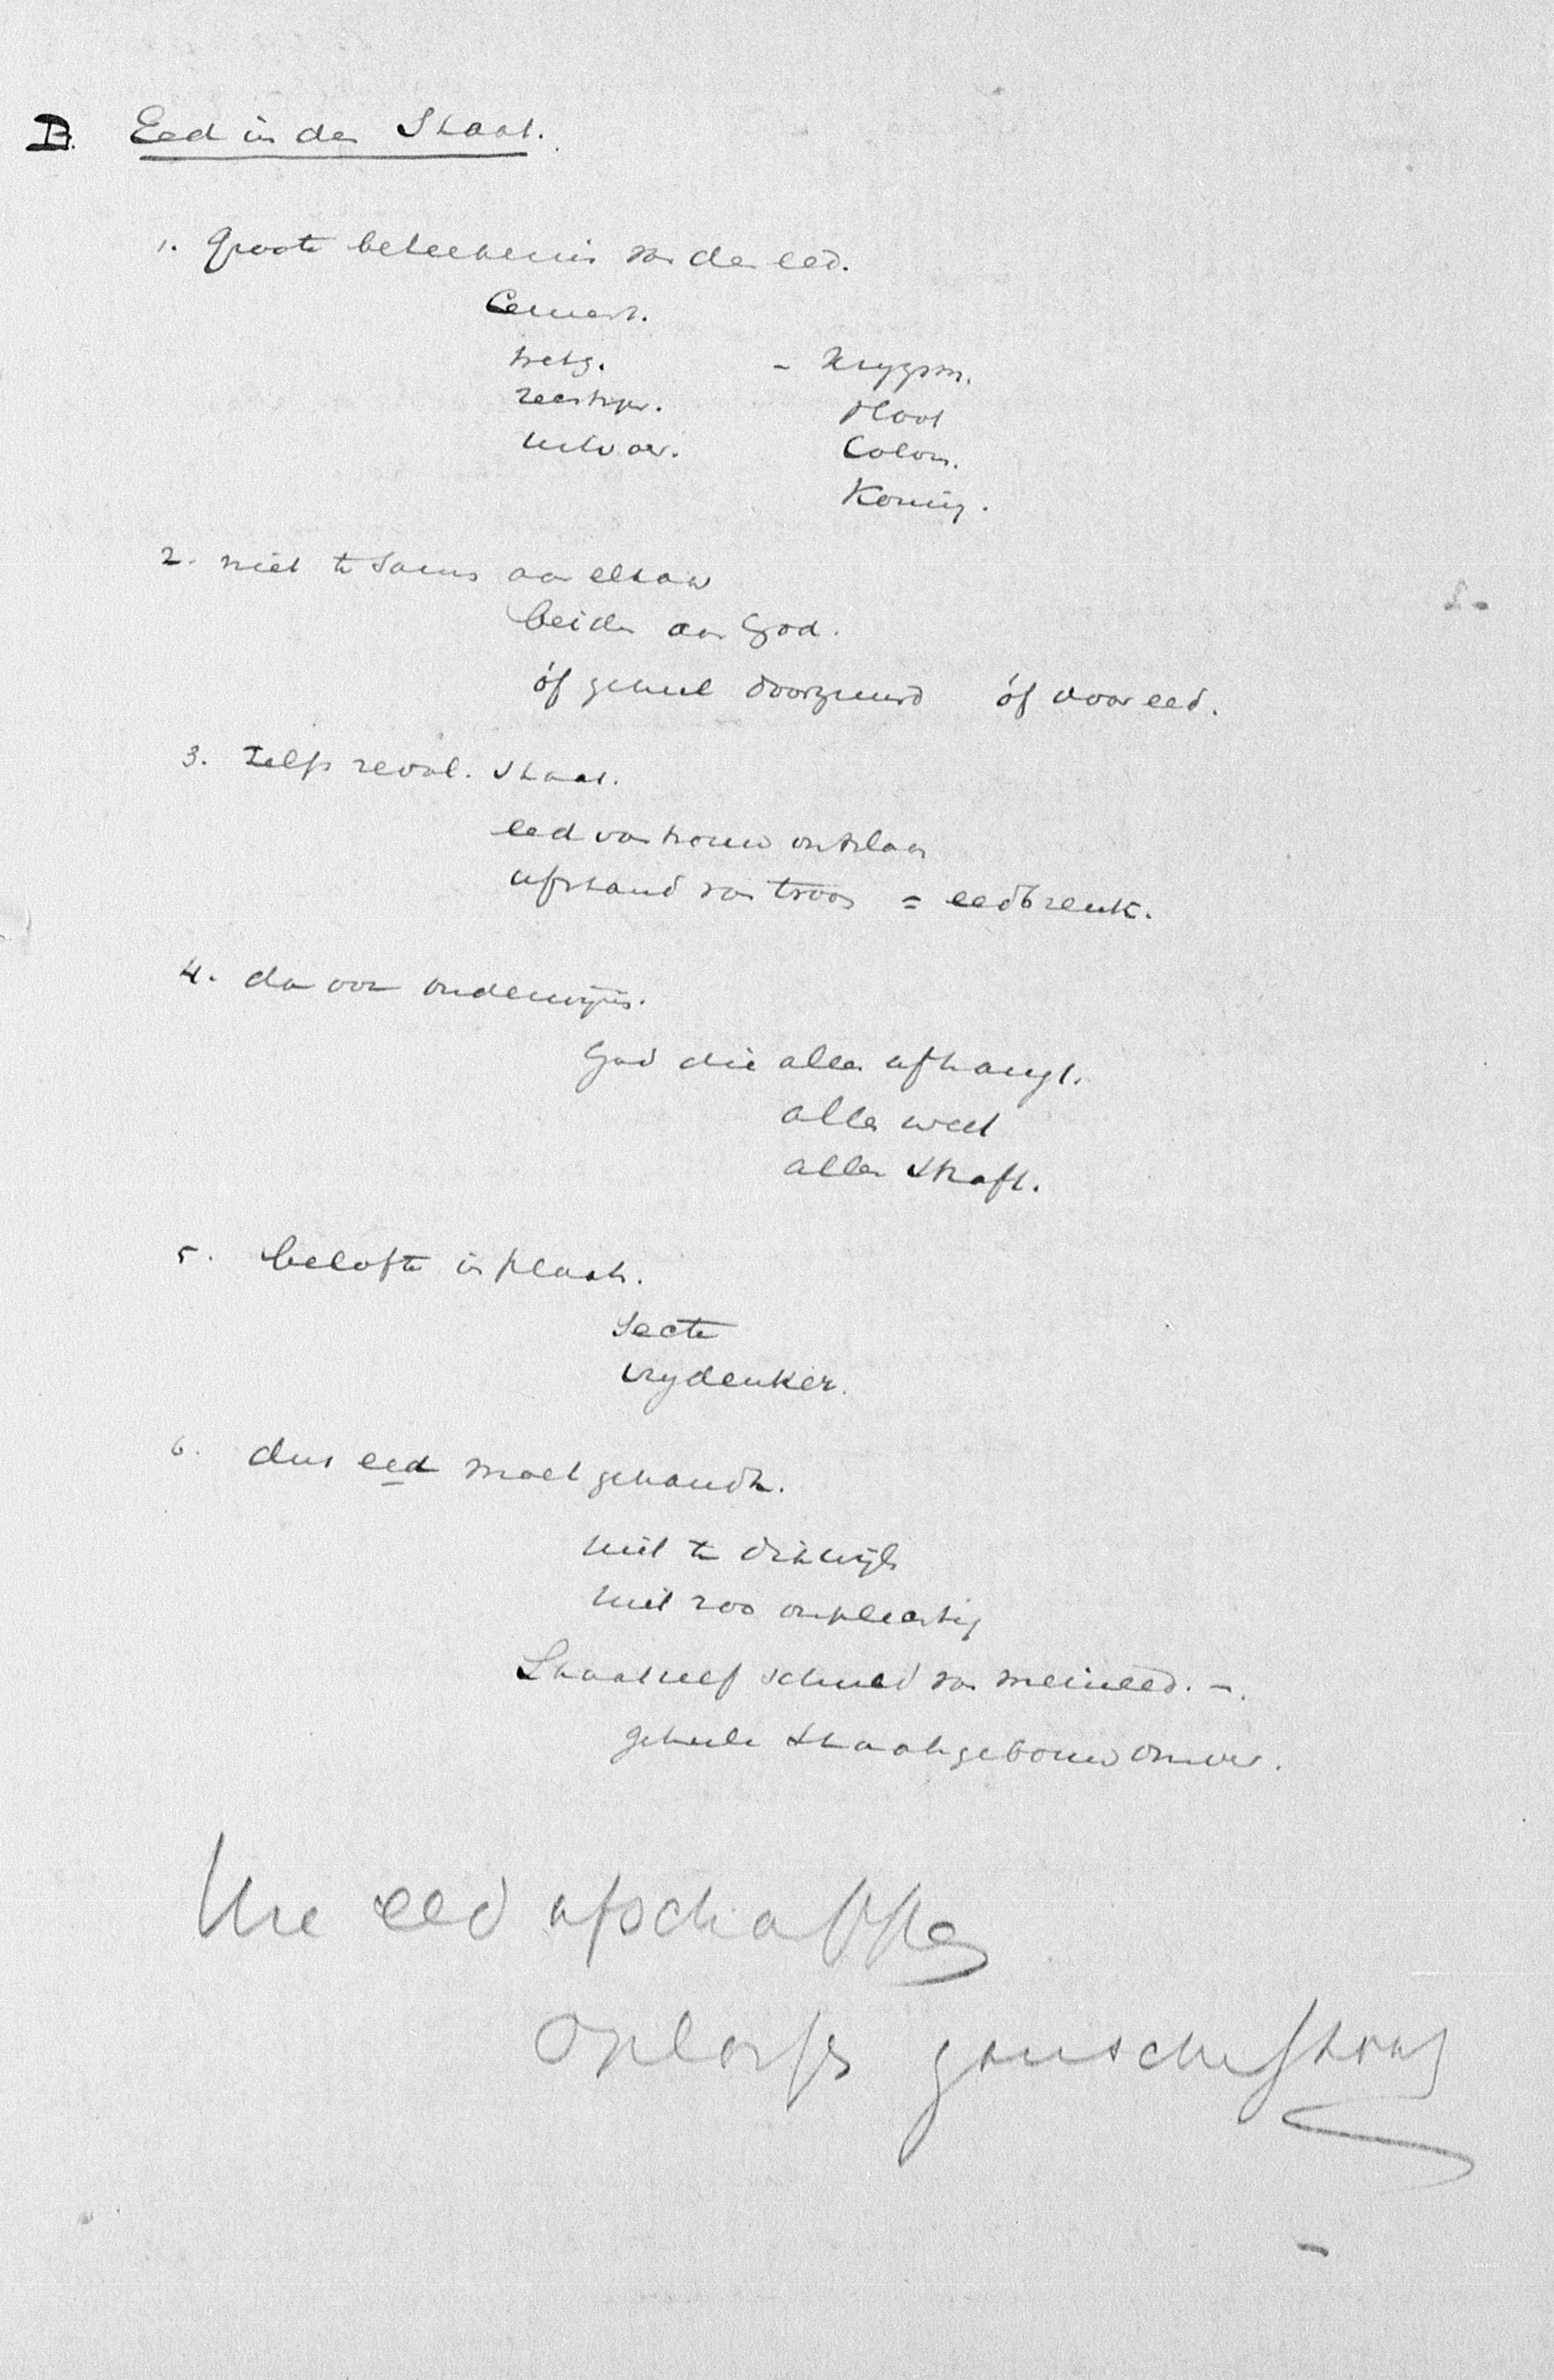 B. Eed in den Staat.
1. Groote beteekenis van den eed.
Cement.
wetg. - Krygsm.
rechtspr. Vloot
uitvoer. Colon.
Koning.
2. niet te saam aan elkaar
beiden aan God.
óf geheel doorgevoerd óf voor eed.
3. Zelfs revol. Staat.
eed van trouw ontslaan
afstand van troon = eedbreuk.
4. dan ook onderwijs.
God die alles afhangt.
alles weet
alles straft.
5. belofte in plaats.
Secte
vrydenker.
6. dus eed moet gehandh.
niet te dikwijls
niet zoo onplechtig
Staat zelf schuld van meineed. -.
geheele Staatsgebouw omver.
Uwe eed afschaffen
Oplossen gansche Staat